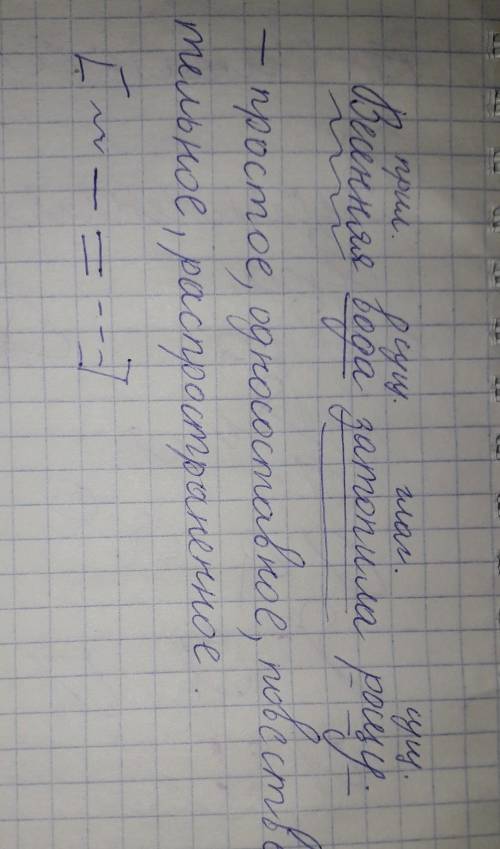 прил. сущ. глаг. сущ.
Весенняя вода затопила рощу.
— простое, односоставное, повество
тельное, распространенное.